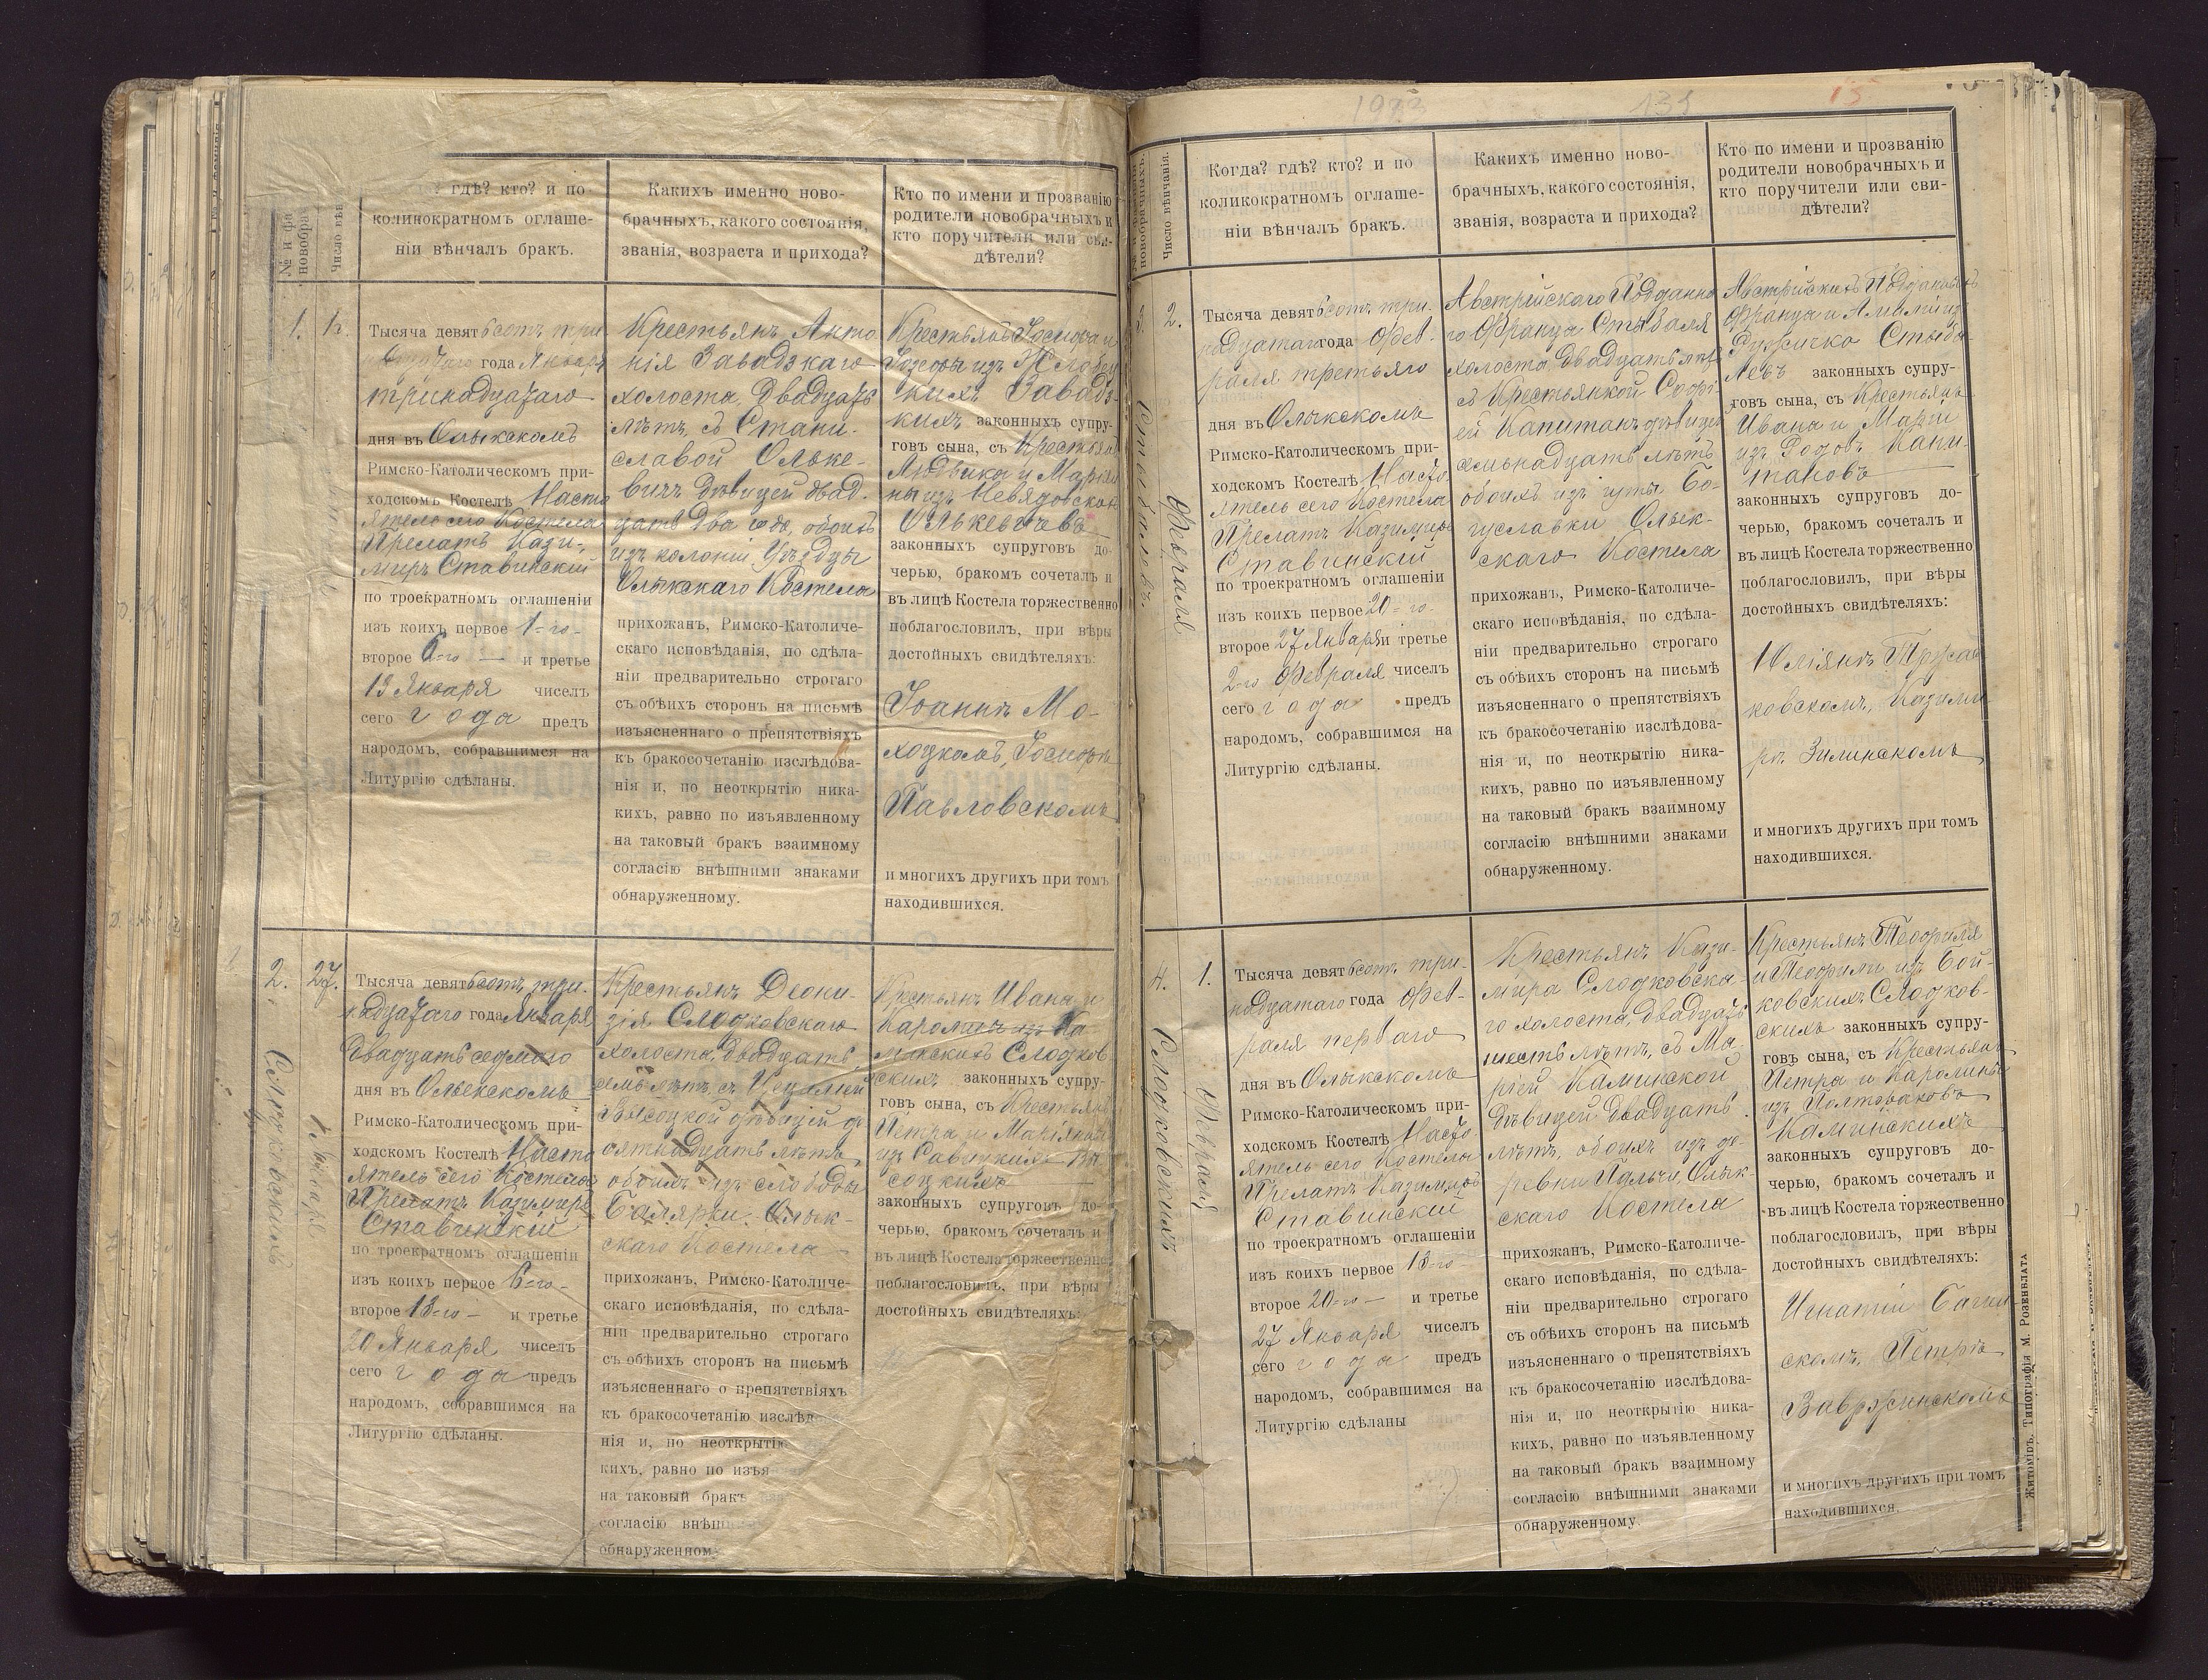 № и фа
новобрач
Число вѣн
гдѣ? кто? и по
коликократномъ оглаше-
ніи вѣнчалъ бракъ.
Какихъ именно ново-
брачныхъ, какого состоянія,
званія, возраста и прихода?
Кто по имени и прозванію
родители новобрачныхъ и
кто поручители или сви-
дѣтели?
1.
Тысяча девятьсотъ три
года Января
тринадцатаго
дня въ Олыкскомъ
Римско-Католическомъ при-
ходскомъ Костелѣ Насто
ятель сего Костела
Прелатъ Кази-
миръ Ставинскій
по троекратномъ оглашеніи
изъ коихъ первое 1-го-
второе 6-го — и третье
13 Января чиселъ
сего года предъ
народомъ, собравшимся на
Литургію сдѣланы.
Крестьянъ Анто
нія Завадзкаго
холоста, двадцать
лѣтъ, съ Стани-
славой Ольке-
вичъ дѣвицей двад-
цать два года, обоихъ
изъ колоніи Уѣздцы
Олыкскаго Костела
прихожанъ, Римско-Католиче-
скаго исповѣданія, по сдѣла-
ніи предварительно строгаго
съ обѣихъ сторонъ на письмѣ
изъясненнаго о препятствіяхъ
къ бракосочетанію изслѣдова-
нія и, по неоткрытію ника-
кихъ, равно по изъявленному
на таковый бракъ взаимному
согласію внѣшними знаками
обнаруженному.
Крестьянъ Іосифа и
Іозефы изъ
кихъ Завадз-
кихъ законныхъ супру-
говъ сына, съ Крестьянъ
Людвика и Маріан
ны изъ
Олькевичевъ
законныхъ супруговъ до-
черью, бракомъ сочеталъ и
въ лицѣ Костела торжественно
поблагословилъ, при вѣры
достойныхъ свидѣтеляхъ:
Іоаннѣ Мо-
хоцкомъ, Іосифѣ
Павловскомъ
и многихъ другихъ при томъ
находившихся.
2.
27.
Января
Слодковскихъ
Тысяча девятьсотъ три-
надцатаго года Января
двадцать седмаго
дня въ Олыкскомъ
Римско-Католическомъ при-
ходскомъ Костелѣ Насто
ятель сего Костела
Прелатъ Казимиръ
Ставинскій
по троекратномъ оглашеніи
изъ коихъ первое 6-го-
второе 13-го — и третье
20 Января чиселъ
сего года предъ
народомъ, собравшимся на
Литургію сдѣланы.
Крестьянъ Діони-
зія Слодковскаго
холоста, двадцать
семь лѣтъ, съ Цециліей
Высоцкой дѣвицей де
вятнадцать лѣтъ,
обоихъ изъ слободы
Балярки Олык-
скаго Костела
прихожанъ, Римско-Католиче-
скаго исповѣданія, по сдѣла-
ніи предварительно строгаго
съ обѣихъ сторонъ на письмѣ
изъясненнаго о препятствіяхъ
къ бракосочетанію изслѣд
нія и, по неоткрытію
кихъ, равно по изъя
на таковый бракъ
согласію внѣш
обнаруженном
Крестьянъ Ивана и
Каролины изъ Ка
минскихъ Слодков
скихъ законныхъ супру-
говъ сына, съ Крестьянъ
Петра и Маріанны
изъ Савицкихъ Вы
соцкихъ
законныхъ супруговъ до-
черью, бракомъ сочеталъ и
въ лицѣ Костела торжественно
поблагословилъ, при вѣры
достойныхъ свидѣтеляхъ:
135
15
новобрачныхъ.
Число вѣнчанія.
Когда? гдѣ? кто? и по
коликократномъ оглаше-
ніи вѣнчалъ бракъ.
Какихъ именно ново-
брачныхъ, какого состоянія,
званія, возраста и прихода?
Кто по имени и прозванію
родители новобрачныхъ и
кто поручители или сви-
дѣтели?
2.
Февраля
Тысяча девятьсотъ три-
надцатаго года Фев-
раля третьяго
дня въ Олыкскомъ
Римско-Католическомъ при-
ходскомъ Костелѣ Насто
ятель сего Костела
Прелатъ Казимиръ
Ставинскій
по троекратномъ оглашеніи
изъ коихъ первое 20-го-
второе 27 Января и третье
2-го Февраля чиселъ
сего года предъ
народомъ, собравшимся на
Литургію сдѣланы.
Австрійскаго Подданна
го Франца Стыбаля
холоста, двадцать лѣтъ
съ Крестьянкой Софі-
ей Капитанъ дѣвицей
семьнадцать лѣтъ
обоихъ изъ гуты Бо-
гуславки Олык-
скаго Костела
прихожанъ, Римско-Католиче-
скаго исповѣданія, по сдѣла-
ніи предварительно строгаго
съ обѣихъ сторонъ на письмѣ
изъясненнаго о препятствіяхъ
къ бракосочетанію изслѣдова-
нія и, по неоткрытію ника-
кихъ, равно по изъявленному
на таковый бракъ взаимному
согласію внѣшними знаками
обнаруженному.
Австрійскихъ Подданныхъ
Франца и Амаліи изъ
Ружичко Стыба-
левъ законныхъ супру-
говъ сына, съ Крестьянъ
Ивана и Маріи
изъ Родовъ Капи-
тановъ
законныхъ супруговъ до-
черью, бракомъ сочеталъ и
въ лицѣ Костела торжественно
поблагословилъ, при вѣры
достойныхъ свидѣтеляхъ:
Юліянѣ
ковскомъ, Казими
рѣ Зилинскомъ
и многихъ другихъ при томъ
находившихся.
4.
1.
Февраля
Слодковскихъ
Тысяча девятьсотъ три-
надцатаго года Фев-
раля перваго
дня въ Олыкскомъ
Римско-Католическомъ при-
ходскомъ Костелѣ Насто-
ятель сего Костела
Прелатъ Казимиръ
Ставинскій
по троекратномъ оглашеніи
изъ коихъ первое 13-го
второе 20-го — и третье
27 Января чиселъ
сего года предъ
народомъ, собравшимся на
Литургію сдѣланы
Крестьянъ Кази-
мира Слодковска-
го холоста, двадцать
шесть лѣтъ, съ Ма-
ріей Каминской
дѣвицей двадцать
лѣтъ, обоихъ изъ де-
ревни Пальче, Олык-
скаго Костела
прихожанъ, Римско-Католиче-
скаго исповѣданія, по сдѣла-
ніи предварительно строгаго
съ обѣихъ сторонъ на письмѣ
изъясненнаго о препятствіяхъ
къ бракосочетанію изслѣдова-
нія и, по неоткрытію ника-
кихъ, равно по изъявленному
на таковый бракъ взаимному
согласію внѣшними знаками
обнаруженному.
Крестьянъ Теофиля
и Теофили изъ Бой-
ковскихъ Слодков-
скихъ законныхъ супру-
говъ сына, съ Крестьянъ
Петра и Каролины
изъ Полтораковъ
Каминскихъ
законныхъ супруговъ до-
черью, бракомъ сочеталъ и
въ лицѣ Костела торжественно
поблагословилъ, при вѣры
достойныхъ свидѣтеляхъ:
Игнатіи
скомъ, Петрѣ
и многихъ другихъ при томъ
находившихся.
Житоміръ. Типографія М. РОЗЕНБЛАТА